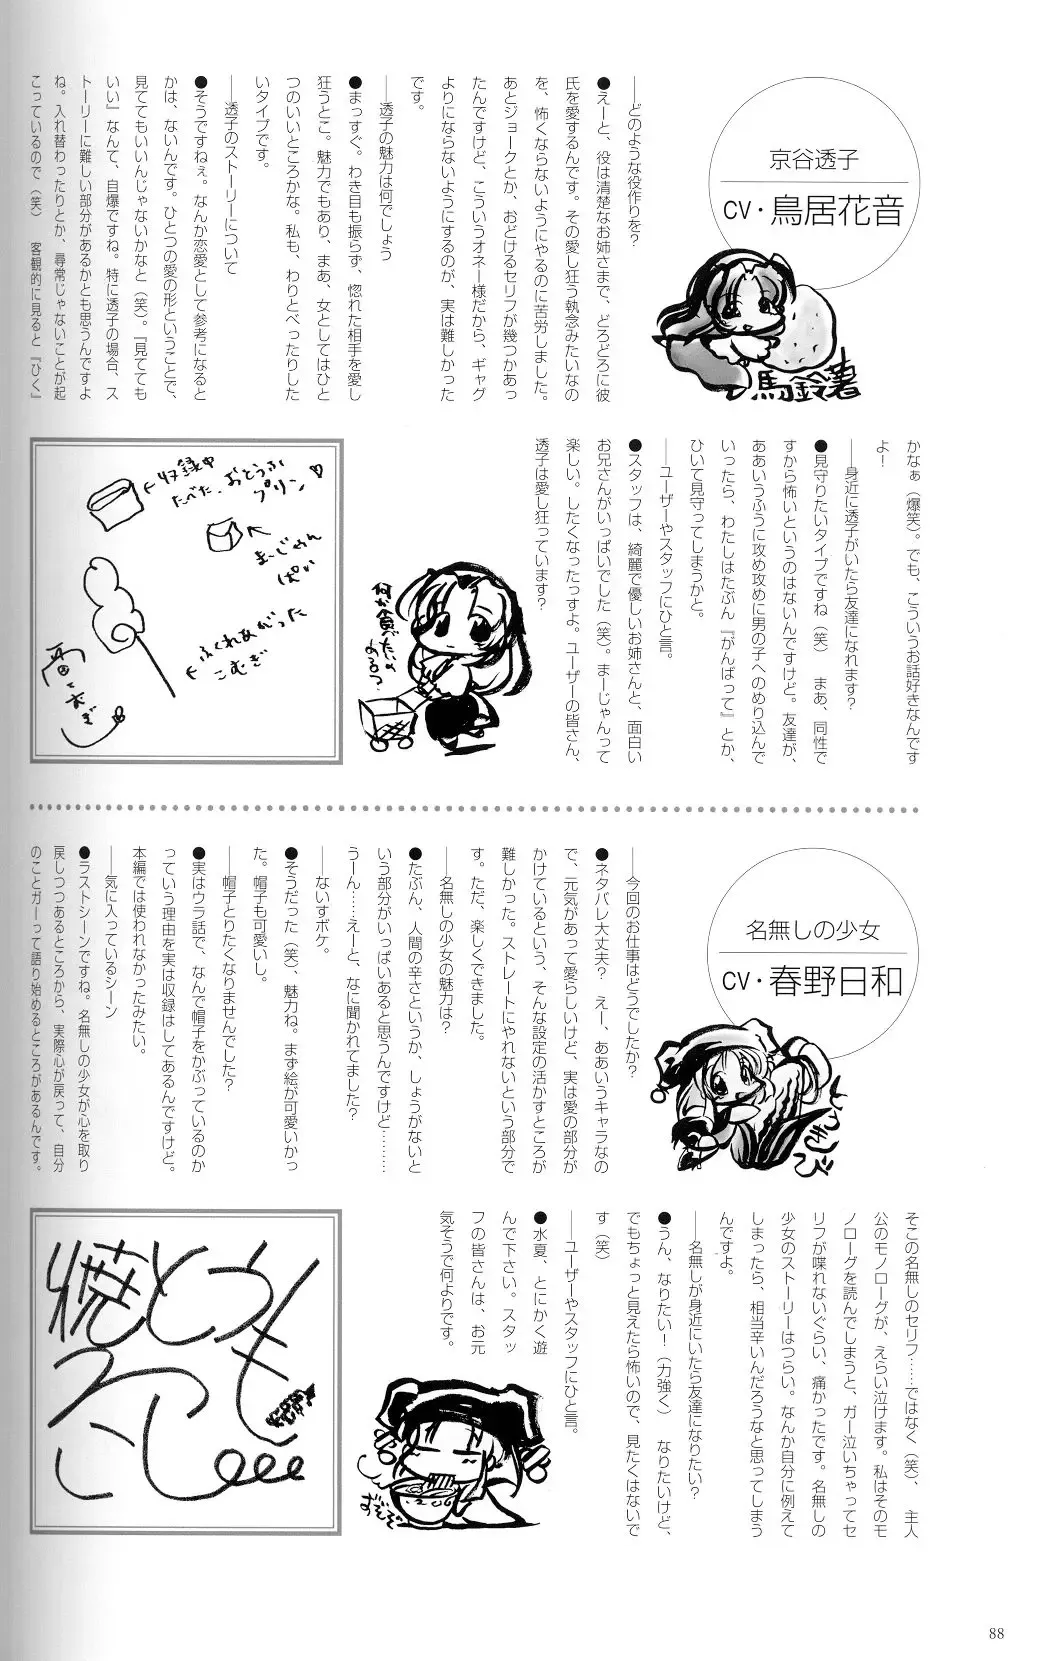 京谷透子
CV・鳥居花音
馬鈴薯
――どのような役作りを?
●えーと、役は清楚なお姉さまで、どろどろに彼
氏を愛するんです。その愛し狂う執念みたいなの
を、怖くならないようにやるのに苦労しました。
あとジョークとか、おどけるセリフが幾つかあっ
たんですけど、こういうオネー様だから、ギャグ
よりにならないようにするのが、実は難しかった
です。
――透子の魅力は何でしょう
●まっすぐ。わき目も振らず、惚れた相手を愛し
狂うとこ。魅力でもあり、まあ、女としてはひと
つのいいところかな。私も、わりとべったりした
いタイプです。
――透子のストーリーについて
●そうですねぇ。なんか恋愛として参考になると
かは、ないんです。ひとつの愛の形ということで、
見ててもいいんじゃないかなと（笑）。『見てても
いい』なんて、自爆ですね。特に透子の場合、ス
トーリーに難しい部分があるかとも思うんですよ
ね。入れ替わったりとか、尋常じゃないことが起
こっているので（笑）　客観的に見ると『ひく』
かなぁ（爆笑）。でも、こういうお話好きなんです
よ!
――身近に透子がいたら友達になれます?
●見守りたいタイプですね（笑）　まあ、同性で
すから怖いというのはないんですけど。友達が、
ああいうふうに攻め攻めに男の子へのめり込んで
いったら、わたしはたぶん『がんばって』とか、
ひいて見守ってしまうかと。
――ユーザーやスタッフにひと言。
●スタッフは、綺麗で優しいお姉さんと、面白い
お兄さんがいっぱいでした（笑）。まーじゃんって
楽しい。したくなったっすよ。ユーザーの皆さん、
透子は愛し狂っています?
何か食べたいものある?
←収録中
たべた、おとうふ
プリン♡
←まーじゃん
ぱい
←ふくれあがった
こむぎ
名無しの少女
CV・春野日和
――今回のお仕事はどうでしたか?
●ネタバレ大丈夫?　えー、ああいうキャラなの
で、元気があって愛らしいけど、実は愛の部分が
かけているという、そんな設定の活かすところが
難しかった。ストレートにやれないという部分で
す。ただ、楽しくできました。
――名無しの少女の魅力は?
●たぶん、人間の辛さというか、しょうがないと
いう部分がいっぱいあると思うんですけど………
うーん……えーと、なに聞かれてました?
――ないすボケ。
●そうだった（笑）、魅力ね。まず絵が可愛いかっ
た。帽子も可愛いし。
――帽子とりたくなりませんでした?
●実はウラ話で、なんで帽子をかぶっているのか
っていう理由を実は収録はしてあるんですけど。
本編では使われなかったみたい。
――気に入っているシーン
●ラストシーンですね。名無しの少女が心を取り
戻しつつあるところから、実際心が戻って、自分
のことガーって語り始めるところがあるんです。
そこの名無しのセリフ……ではなく（笑）、　主人
公のモノローグが、えらい泣けます。私はそのモ
ノローグを読んでしまうと、ガー泣いちゃってセ
リフが喋れないぐらい、痛かったです。名無しの
少女のストーリーはつらい。なんか自分に例えて
しまったら、相当辛いんだろうなと思ってしまう
んですよ。
――名無しが身近にいたら友達になりたい?
●うん、なりたい!（力強く）　なりたいけど、
でもちょっと見えたら怖いので、見たくはないで
す（笑）
――ユーザーやスタッフにひと言。
●水夏、とにかく遊
んで下さい。スタッ
フの皆さんは、お元
気そうで何よりです。
焼とうもろこし
88